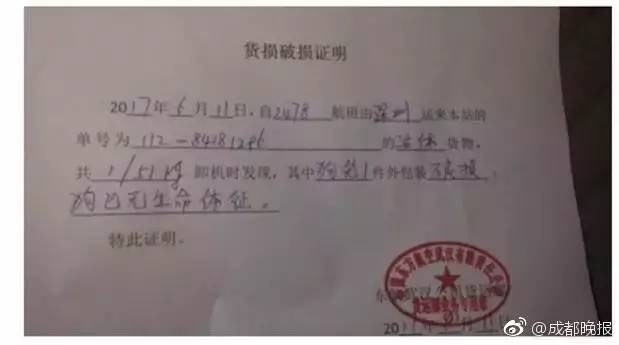 货损破损证明
2017年6月11日,自2478航班由深圳运来本站的
单号为 112-84281296 的活体货物,
共 1/51kg 卸机时发现,其中狗笼1件外包装破损,
狗已无生命体征。
特此证明。
东方航空武汉有限责任公司
@成都晚报